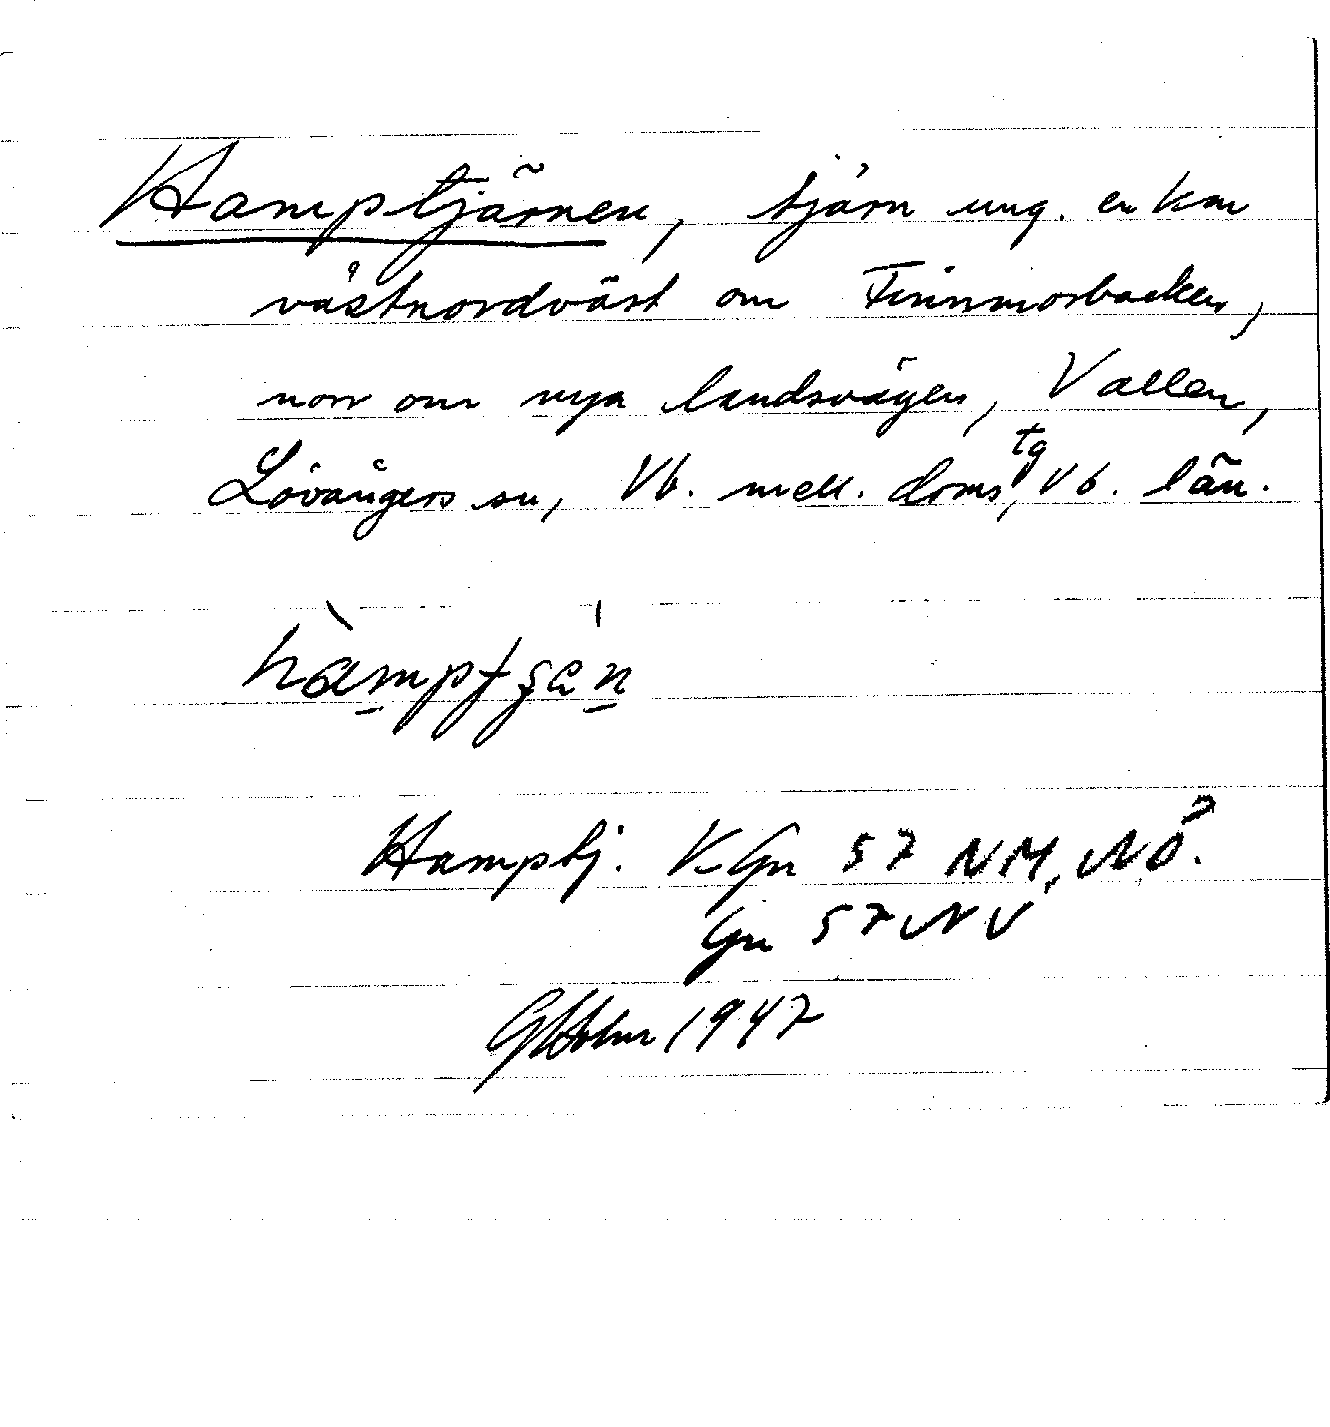 Hamptjärnen, tjärn ung. en km
västnordväst om Finnmorbacken,
norr om nya landsvägen, Vallen,
Lövångers sn, Vb. mell. doms tg, Vb. län.
Hamptj. V-Gn 57 NM, NÖ.
Gn 57 NV
GHolm 1947